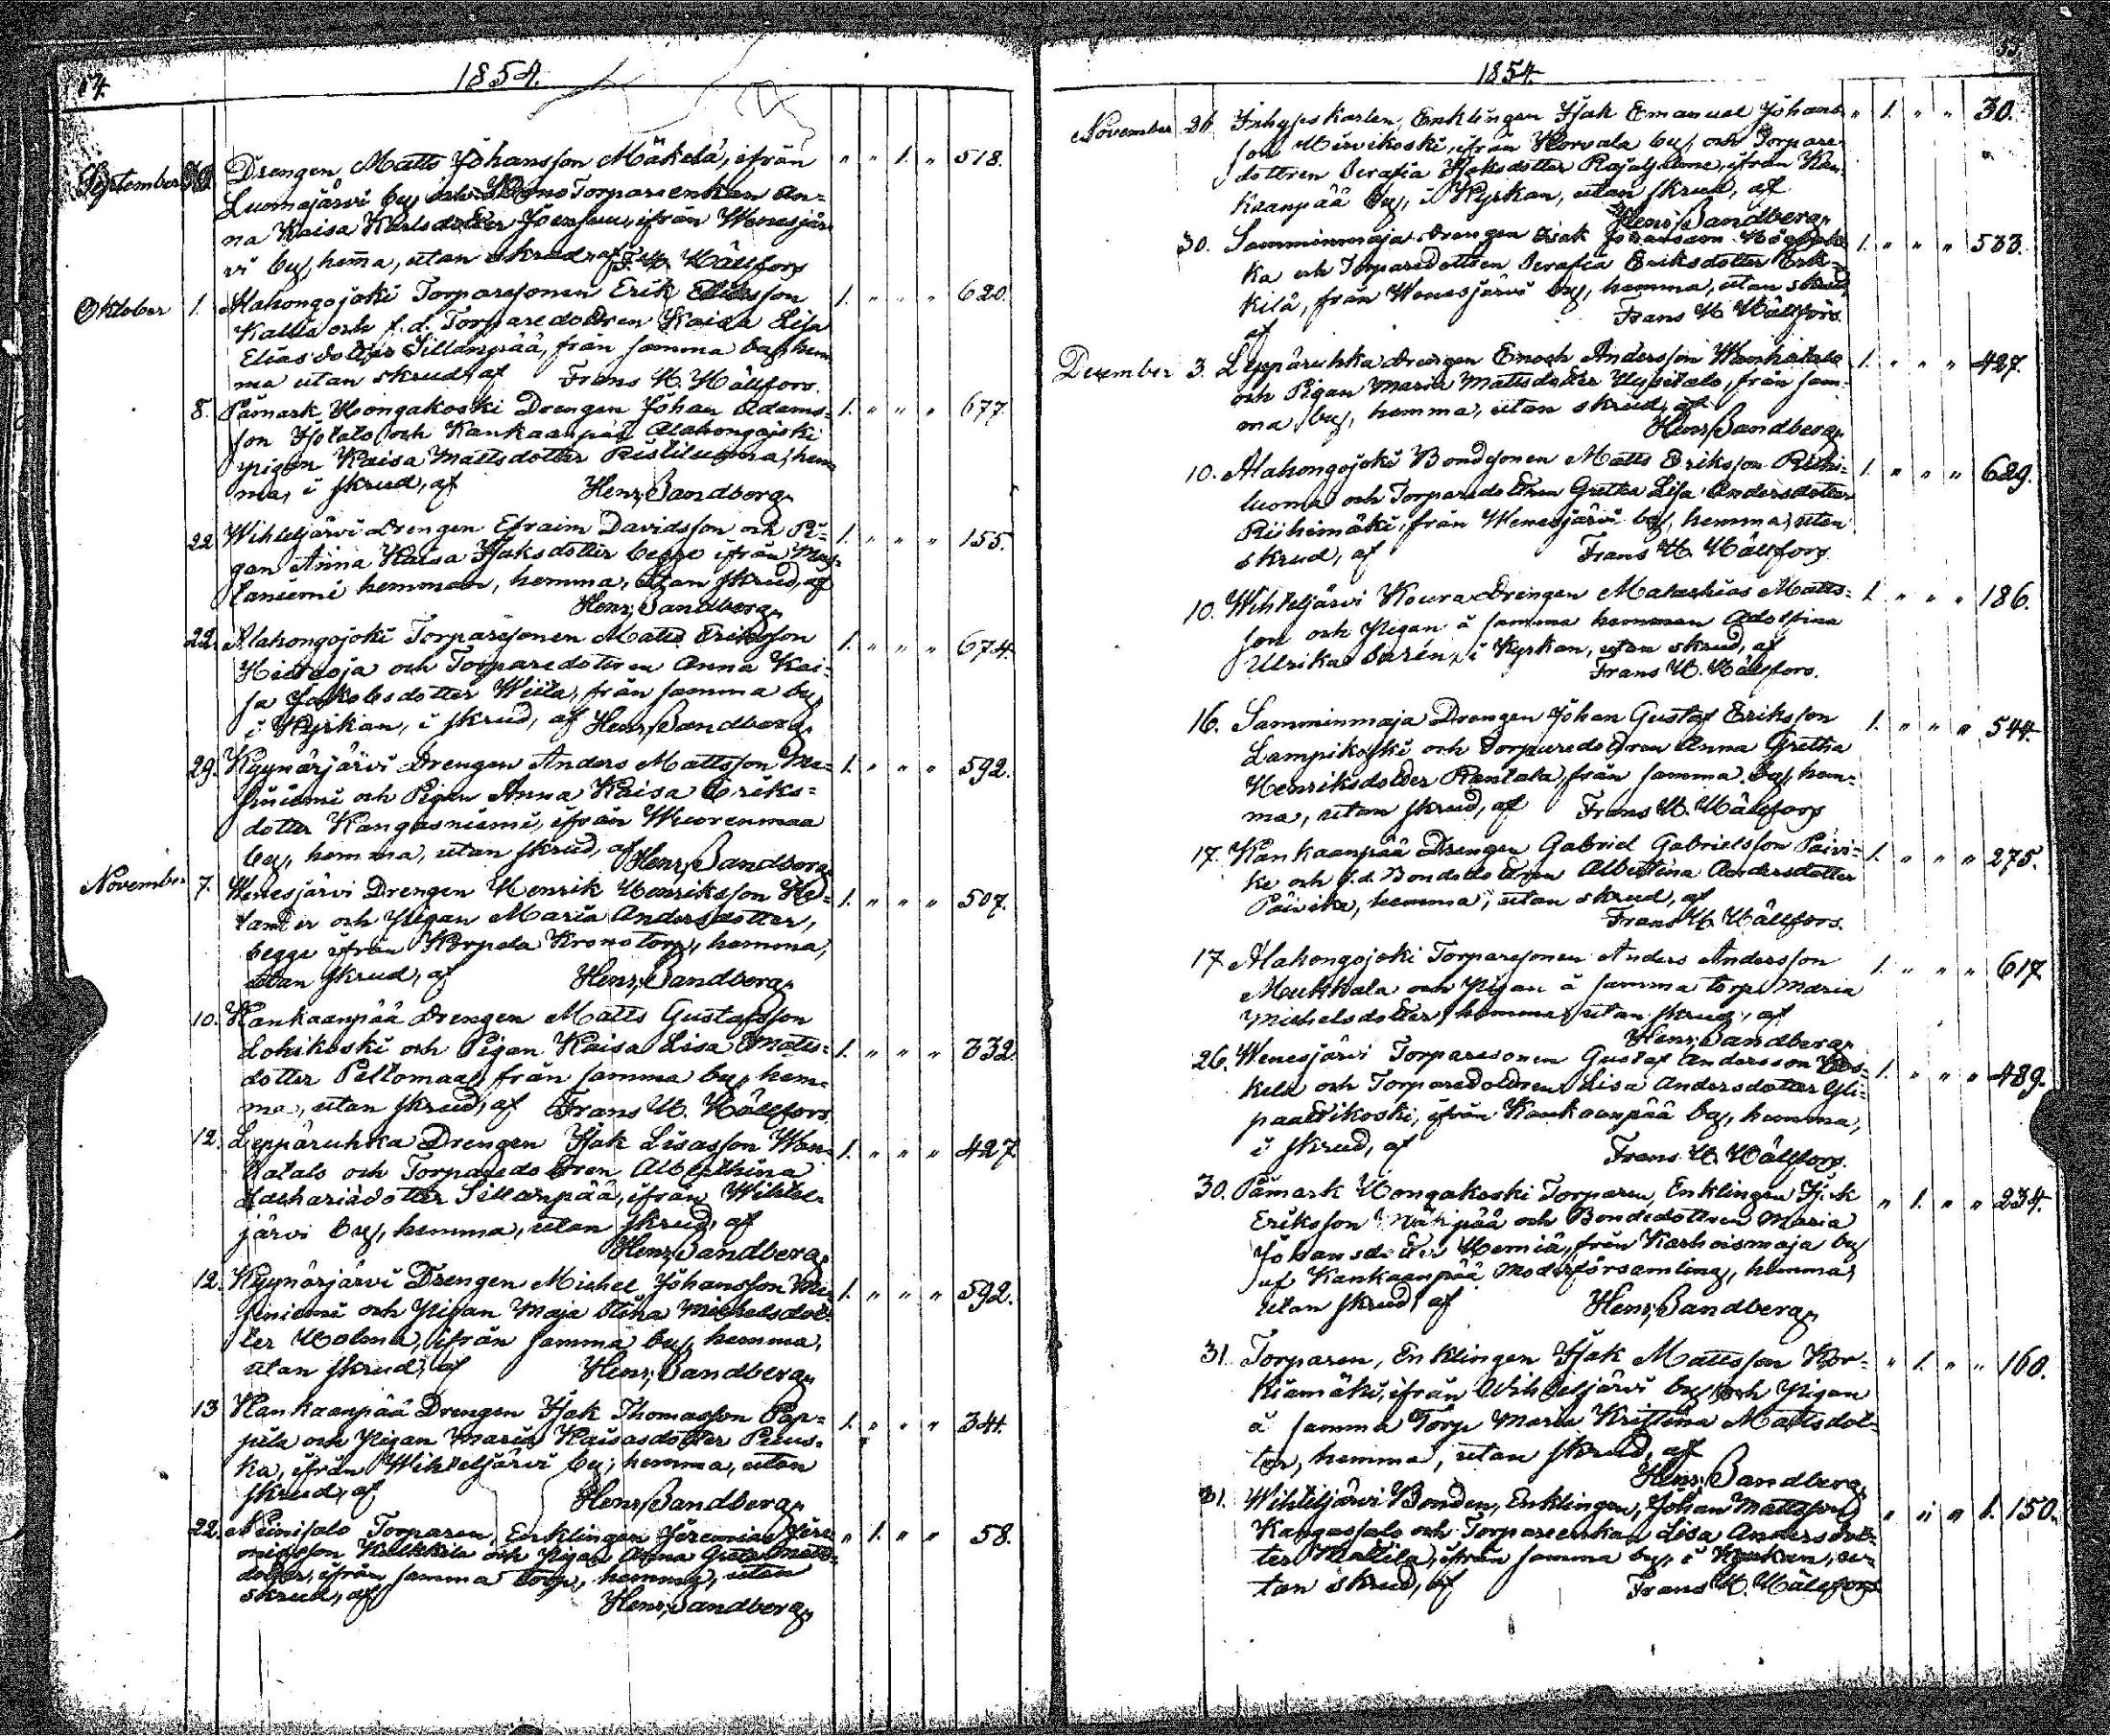 1854.
September
Drengen Matts Johansson Mäkelä, ifrån " " 1. " 518.
Luomajärvi by och Torpareenkan An-
na Kaisa Karlsdotter ifrån Wenesjär-
vi by, hemma, utan skrud, af F. H. Hällfors
Oktober 1. Alahongojoki Torparesonen Erik Eliasson 1. " " " 620.
Kallia och f.d. Torparedottren Kaisa Lisa
Eliasdotter Sillanpää, från samma by, hem-
ma utan skrud, af Frans H. Hällfors.
8. Påmark Hongakoski Drengen Johan Adams- 1. " " " 677.
son och Kankaanpää Alahongojoki
pigan Kaisa Mattsdotter Ristiluoma, hem-
ma, i skrud, af Henr. Sandberg.
22 Wihteljärvi Drengen Efraim Davidsson och Pi- 1. " " " 155.
gan Anna Kaisa Isaksdotter begge ifrån
taniemi hemman, hemma, utan skrud, af
Henr. Sandberg.
22. Alahongojoki Torparesonen Matts Eriksson 1. " " " 674.
Hietaoja och Torparedottren Anna Kai-
sa Jakobsdotter Wiita, från samma by,
i Kyrkan, i skrud, af Henr. Sandberg.
29. Kyynärjärvi Drengen Anders Mattsson 1. " " " 592.
och Pigan Anna Kaisa Eriks-
dotter Kangasniemi, ifrån Wuorenmaa
by, hemma, utan skrud, af Henr. Sandberg.
November 7. Wenesjärvi Drengen Henrik Henriksson He- 1. " " " 507.
lander och Pigan Maria Andersdotter,
begge ifrån Korpela Kronotorp, hemma,
utan skrud, af Henr. Sandberg.
10. Kankaanpää Drengen Matts Gustafsson
Lohikoski och Pigan Kaisa Lisa Matts- 1. " " " 332.
dotter Peltomaa, från samma by, hem-
ma, utan skrud, af Frans H. Hällfors.
12. Leppäruhka Drengen Isak Lisasson Wan- 1. " " " 427
hatalo och Torparedottren Albertina
Zachariadotter Sillanpää, ifrån Wihtel-
järvi by, hemma, utan skrud, af
Henr. Sandberg.
12. Kyynärjärvi Drengen Michel Johansson 1. " " " 592.
och Pigan Maja Stina Michelsdot-
ter Holma, ifrån samma by, hemma,
utan skrud, af Henr. Sandberg.
13 Kankaanpää Drengen Isak Thomasson Pap- 1. " " " 344.
pila och Pigan Maria Kaisasdotter Puus-
ka, ifrån Wihteljärvi by, hemma, utan
skrud, af Henr. Sandberg.
22. Niinisalo Torparen, Enklingen Jeremias Jere- " 1. " " 58.
miasson och Pigan Anna Greta Matts-
dotter, ifrån samma torp, hemma, utan
skrud, af Henr. Sandberg.
1854
November 26 Enklingen Isak Emanuel Johans- " 1. " " 30.
son ifrån by, och Torpare-
dottren Serafia Isaksdotter ifrån Kan-
kaanpää by, i Kyrkan, utan skrud, af
Henr. Sandberg.
30. Samminmaja Drengen Isak Johansson 1. " " " 533.
ka och Torparedottren Serafia Eriksdotter Erk-
kilä, från Wenesjärvi by, hemma, utan skrud
af Frans H. Hällfors.
December 3. Leppäruhka Drengen Enoch Andersson Wanhatalo 1. " " " 427.
och Pigan Maria Mattsdotter Uusitalo, från sam-
ma by, hemma, utan skrud, af
Henr. Sandberg.
10. Alahongojoki Bondesonen Matts Eriksson 1. " " " 629.
luoma och Torparedottren Gretha Lisa Andersdotter
Riihimäki, från Wenesjärvi by, hemma, utan
skrud, af Frans H. Hällfors.
10. Wihteljärvi Koura Drengen Malachias Matts- 1. " " " 186.
son och Pigan å samma hemman Adolfina
Ulrika i Kyrkan, utan skrud, af
Frans H. Hällfors.
16. Samminmaja Drengen Johan Gustaf Eriksson 1. " " " 544.
Lampikoski och Torparedottren Anna Gretha
Henriksdotter Rantala, från samma by, hem-
ma, utan skrud, af Frans H. Hällfors
17. Kankaanpää Drengen Gabriel Gabrielsson Päivi- 1. " " " 275.
ke och f.d. Bondedottren Albertina Andersdotter
Päivike, hemma, utan skrud, af
Frans H. Hällfors.
17 Alahongojoki Torparesonen Anders Andersson 1. " " " 617
Mukkala och Pigan å samma torp Maria
Michelsdotter, hemma, utan skrud, af
Henr. Sandberg.
26. Wenesjärvi Torparesonen Gustaf Andersson 1. " " " 489.
kela och Torparedottren Lisa Andersdotter Yli-
paattikoski, ifrån Kankaanpää by, hemma,
i skrud, af Frans H. Hällfors.
30. Påmark Hongakoski Torparen, Enklingen Isak " 1. " " 234.
Eriksson och Bondedottren Maria
Johansdotter Hemiä, från Karhoismaja by
af Kankaanpää Moderförsamling, hemma,
utan skrud, af Henr. Sandberg.
31. Torparen, Enklingen Isak Mattsson Kor- " 1. " " 160.
kiamäki, ifrån Wihteljärvi by och Pigan
å samma Torp Maria Kristina Mattsdot-
ter, hemma, utan skrud, af
Henr. Sandberg.
31. Wihteljärvi Bonden, Enklingen, Johan Mattsson " " " 1. 150.
Kangassalo och Torpareenkan Lisa Andersdot-
ter Mattila, ifrån samma by, i Kyrkan, u-
tan skrud, af Frans H. Hällfors